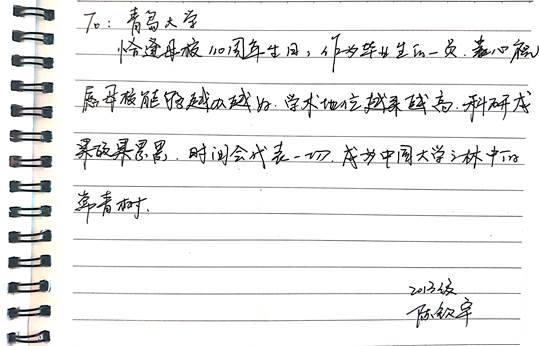 To：青岛大学
恰逢母校110周年生日，作为毕业生的一员，衷心祝
愿母校能够越办越好，学术地位越来越高，科研成
果硕果累累，时间会代表一切，成为中国大学之林中的
常青树.
2013级
陈钦宇